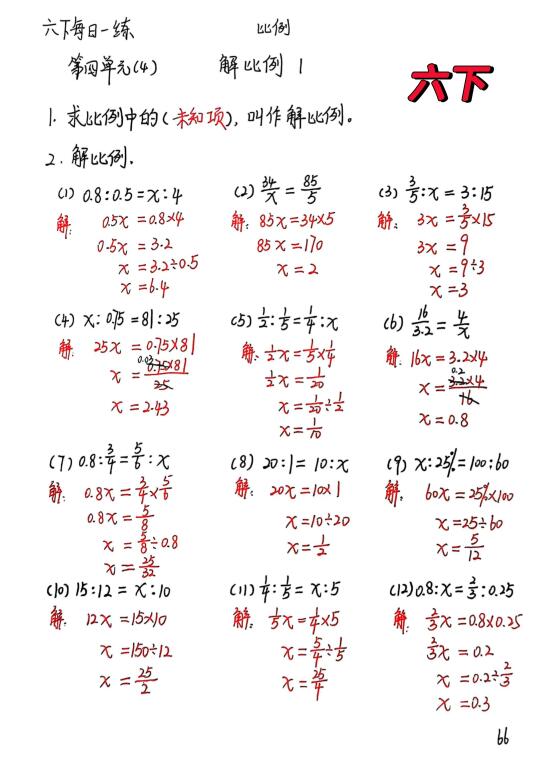 六下每日一练 比例
第四单元(4) 解比例 1
六下
1. 求比例中的(未知项),叫作解比例。
2. 解比例.
(1) 0.8:0.5=x:4
解: 0.5x=0.8×4
0.5x=3.2
x=3.2÷0.5
x=6.4
(2) 34/x=85/5
解: 85x=34×5
85x=170
x=2
(3) 3/5:x=3:15
解: 3x=3/5×15
3x=9
x=9÷3
x=3
(4) x:0.75=81:25
解: 25x=0.75×81
x=0.75×81/25 0.03
x=2.43
(5) 1/2:1/5=1/4:x
解: 1/2x=1/5×1/4
1/2x=1/20
x=1/20÷1/2
x=1/10
(6) 16/3.2=4/x
解: 16x=3.2×4
x=3.2×4/16 0.2
x=0.8
(7) 0.8:3/4=5/6:x
解: 0.8x=3/4×5/6
0.8x=5/8
x=5/8÷0.8
x=25/32
(8) 20:1=10:x
解: 20x=10×1
x=10÷20
x=1/2
(9) x:25%=100:60
解: 60x=25%×100
x=25÷60
x=5/12
(10) 15:12=x:10
解: 12x=15×10
x=150÷12
x=25/2
(11) 1/4:1/5=x:5
解: 1/5x=1/4×5
x=5/4÷1/5
x=25/4
(12) 0.8:x=2/3:0.25
解: 2/3x=0.8×0.25
2/3x=0.2
x=0.2÷2/3
x=0.3
66